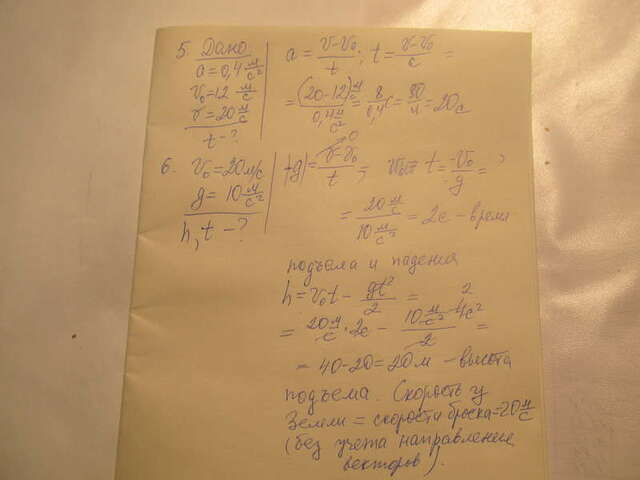 5 Дано
a = 0,4 м/с²
v₀ = 12 м/с
v = 20 м/с
t - ?
a = (v-v₀)/t ; t = (v-v₀)/c =
= (20-12) м/с / 0,4 м/с² = 8/0,4 c = 80/4 = 20 c
6. v₀ = 20 м/с
g = 10 м/с²
h, t - ?
|-g| = (v-v₀)/t ; t = -v₀/g =
= 20 м/с / 10 м/с² = 2c - время
подъёма и падения
h = v₀t - gt²/2 =
= 20 м/с · 2c - 10 м/с² · 4c² / 2 =
= 40-20 = 20 м - высота
подъёма. Скорость у
Земли = скорости броска = 20 м/с
(без учёта направление
векторов).